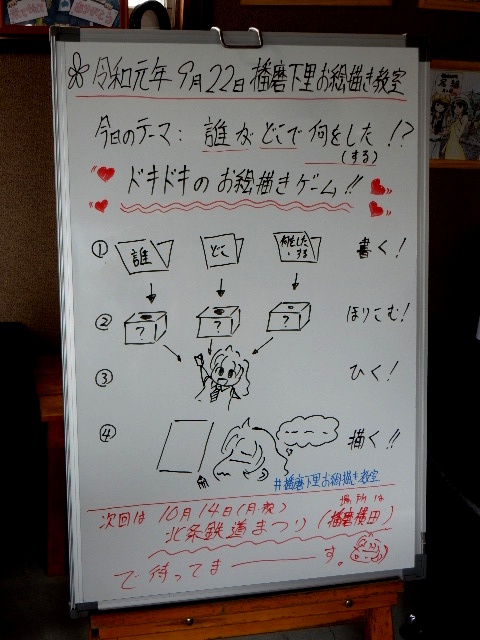 令和元年 9月22日 播磨下里お絵描き教室
今日のテーマ: 誰がどこで何をした!?
(する)
ドキドキのお絵描きゲーム!!
① 誰 どこ 何をした・する 書く!
② ? ? ? ほりこむ!
③ ひく!
④ 描く!!
#播磨下里お絵描き教室
次回は 10月14日(月・祝) 場所は
北条鉄道まつり(播磨横田)
で待ってま――――す。